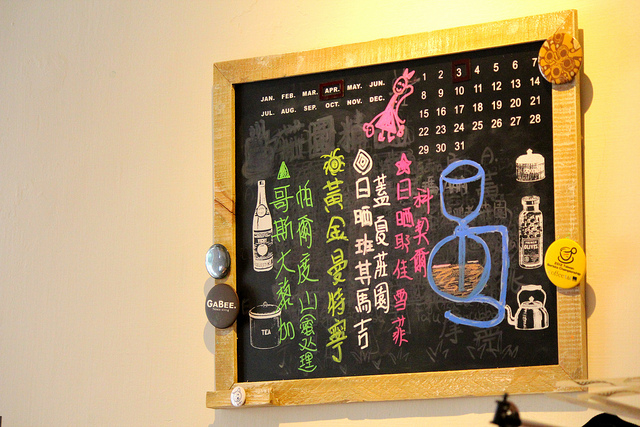 JAN. FEB. MAR. APR. MAY. JUN.
JUL. AUG. SEP. OCT. NOV. DEC.
1 2 3 4 5 6 7
8 9 10 11 12 13 14
15 16 17 18 19 20 21
22 23 24 25 26 27 28
29 30 31
科契爾
日晒耶佳雪菲
蓋夏莊園
日晒班其馬吉
黃金曼特寧
帕爾度山蜜处理
哥斯大黎加
TEA
GABEE.